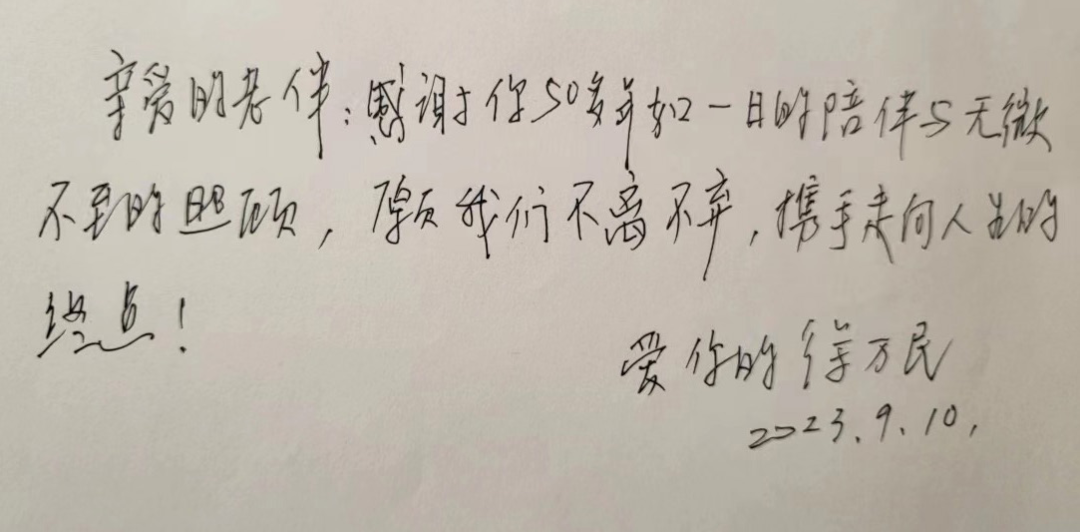 亲爱的老伴：感谢你50多年如一日的陪伴与无微
不至的照顾，愿我们不离不弃，携手走向人生的
终点！
爱你的 徐万民
2023.9.10,